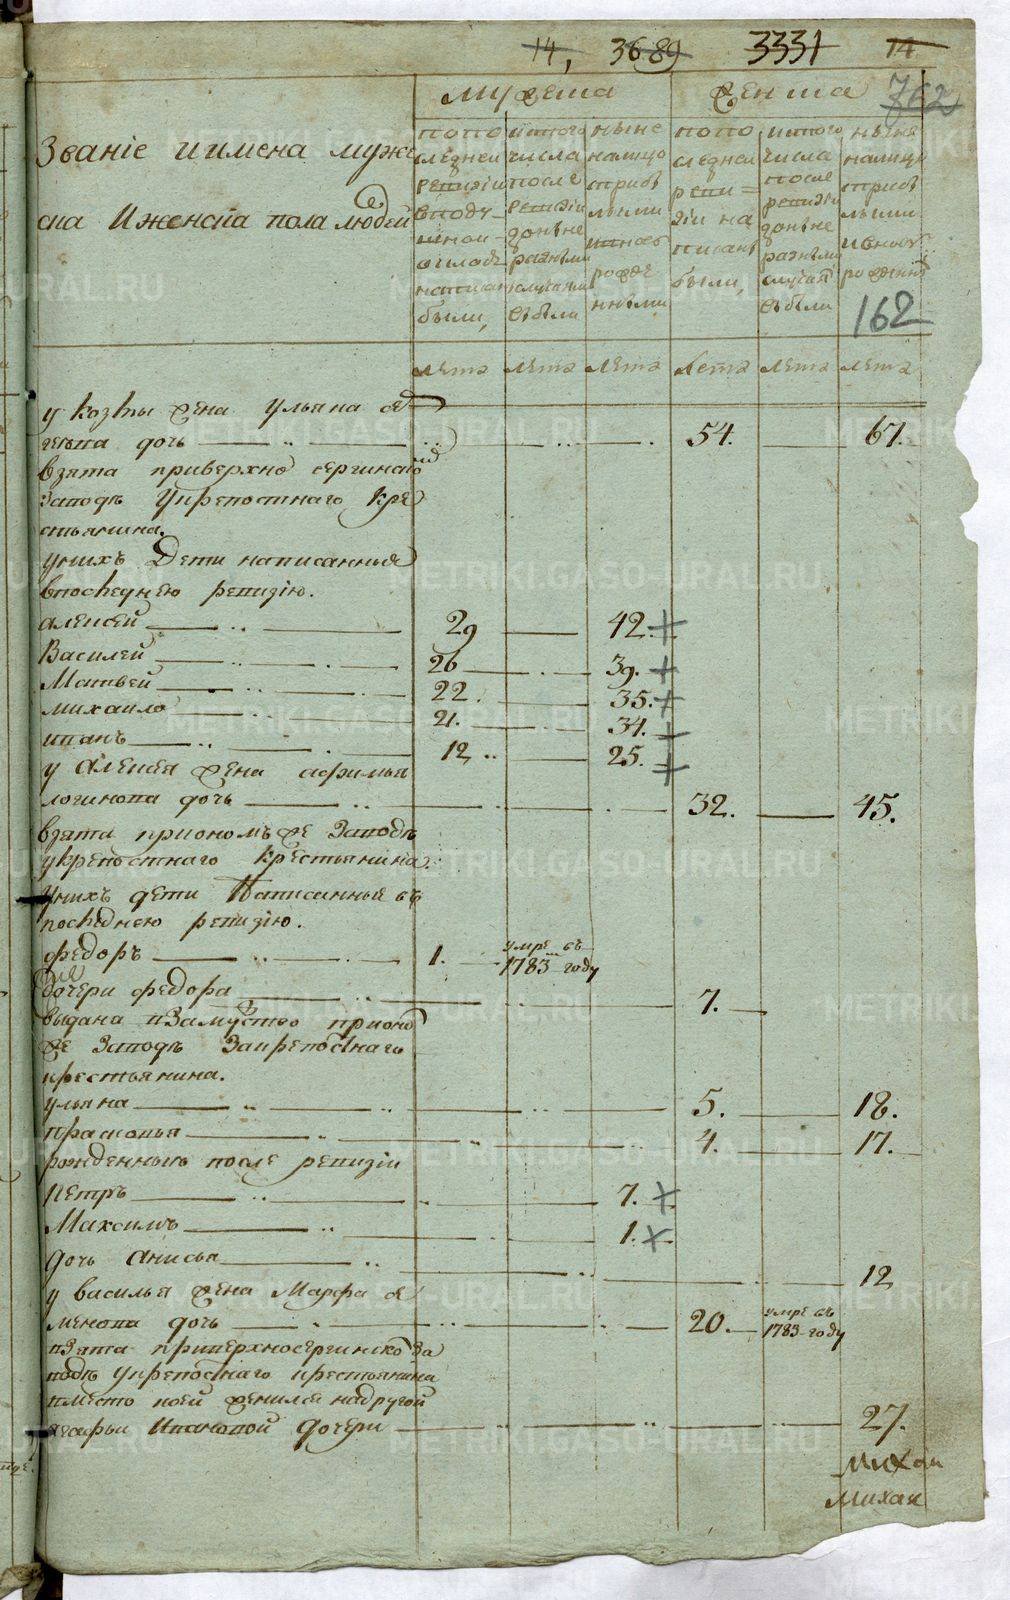 14, 3689 3331 14
762
мужеска женска
Званіе и имена муже
ска И женска пола людей
попо
следней
ревизіи
вподу
шном
окладе
написаны
были,
исьтого
числа
после
ревизіи
доныне
разными
случаями
выбыли
ныне
налицо
сприбы
лыми
ивновь
рожде
нными
попо
следней
реви=
зіи на
писаны
были,
исьтого
числа
после
ревизіи
доныне
разными
случая
выбыли
ныне
налицо
сприбы
лыми
ивновь
рожденны
162
лета лета лета лета лета лета
у козмы жена Ульяна ев
геева дочь 54. 67.
взята приверхно сергинской
заводе Укрепостнаго кре
стьянина.
унихъ Дети написанныя
впоследнею ревизію.
алексей 29 42.
Василей 26 39.
Матвей 22. 35.
михаило 21. 34.
иванъ 12 25.
у Алексея жена афимья
логинова дочь 32. 45.
взятаприономъ же Заводе
укрепостнаго крестьянина.
Унихъ дети Написанныя въ
последнею ревизію.
федоръ 1. умре въ
1783 году
дочери федора 7.
выдана взамуство прионо
же Заводе Закрепостнаго
крестьянина.
ульяна 5. 18.
прасковья 4. 17.
рожденныи после ревизіи
Петръ 7.
Максимъ 1.
дочь анисья 12
у василья жена Марфа се
менова дочь 20. умре въ
1783 году
взята приверхносергинско за
воде укрепостнаго крестьянина
вместо коей женился надругой
агафьи Ивановой дочери 27.
Михаи
Михаи
METRIKI.GASO-URAL.RU